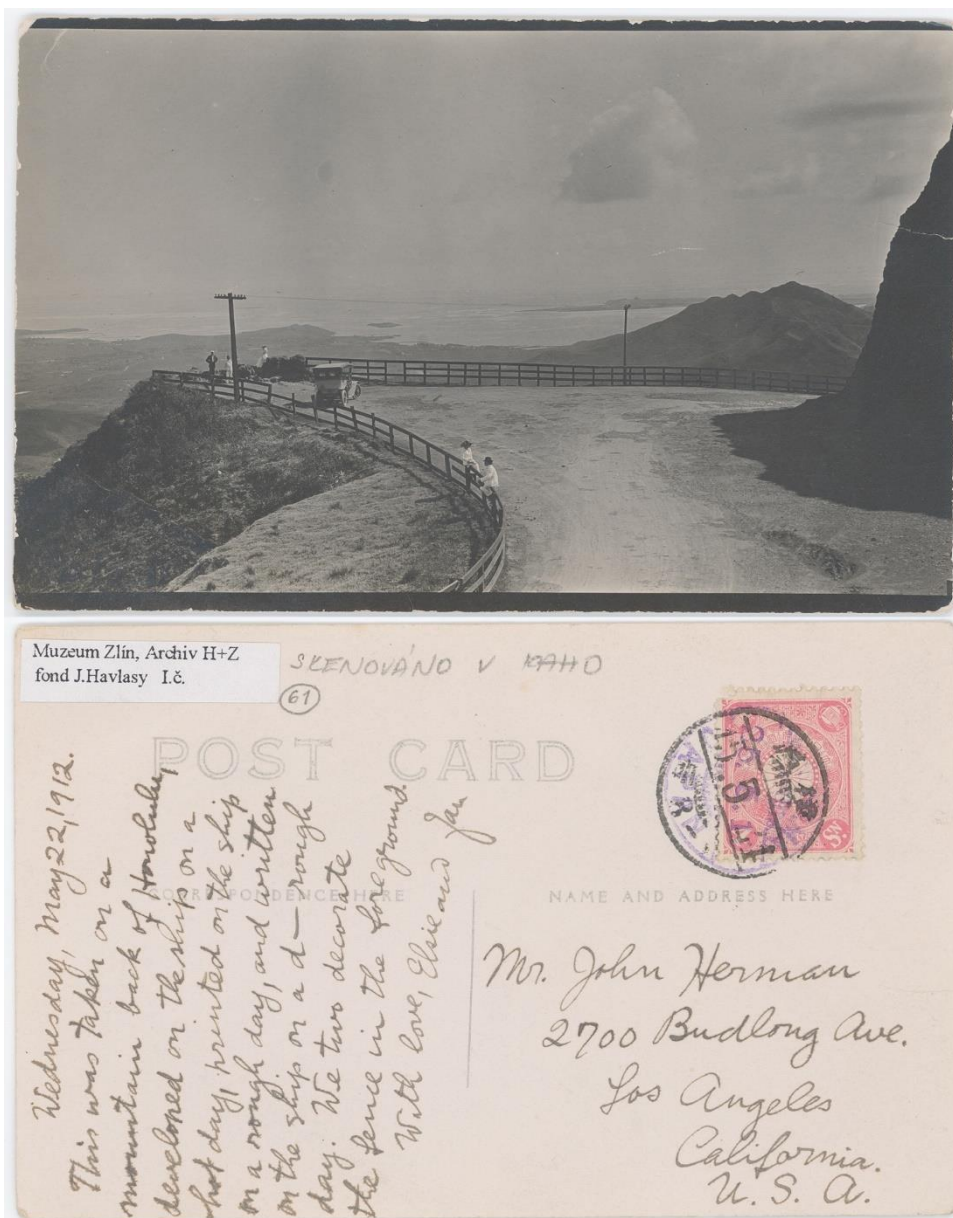 Muzeum Zlín, Archiv H+Z
fond J.Havlasy I.č.
SKENOVÁNO V KAHO
61
POST CARD
CORRESPONDENCE HERE
NAME AND ADDRESS HERE
Wednesday, May 22, 1912.
This was taken on a
mountain back of Honolulu,
developed on the ship on a
hot day, printed on the ship
on a rough day, and written
on the ship on a d— rough
day. We two decorate
the fence in the foreground.
With love, Elsie and Jan
Mr. John Herman
2700 Budlong Ave.
Los Angeles
California.
U. S. A.